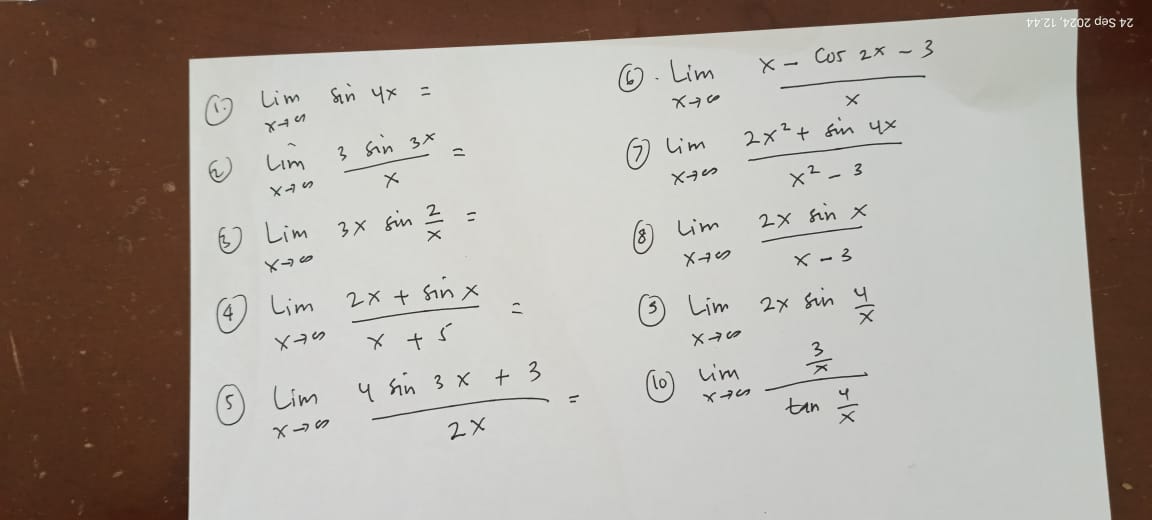 24 Sep 2024, 12.44
① Lim x→∞ sin 4x =
② Lim x→∞ 3 sin 3x / x =
③ Lim x→∞ 3x sin 2/x =
④ Lim x→∞ 2x + sin x / x + 5 =
⑤ Lim x→∞ 4 sin 3x + 3 / 2x =
⑥. Lim x→∞ x - cos 2x - 3 / x
⑦ Lim x→∞ 2x² + sin 4x / x² - 3
⑧ Lim x→∞ 2x sin x / x - 3
⑨ Lim x→∞ 2x sin 4/x
⑩ Lim x→∞ 3/x / tan 4/x